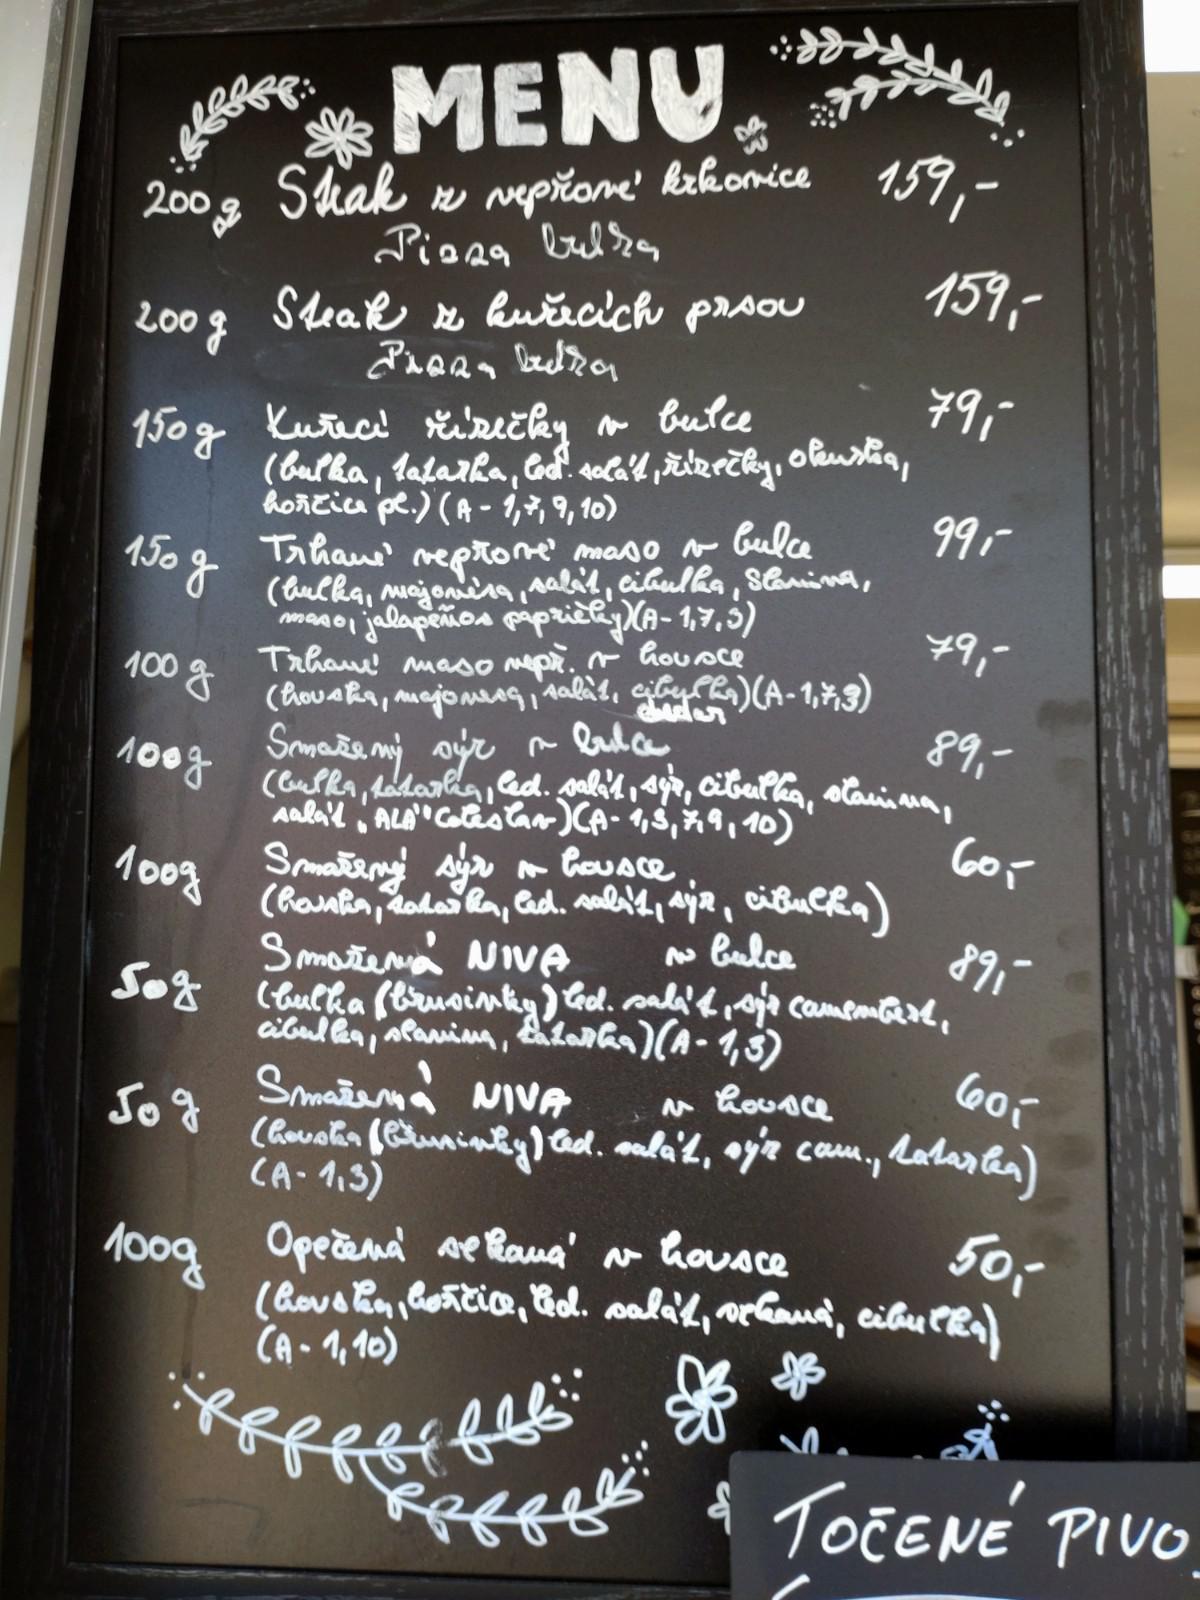 MENU
200g Steak z vepřové krkovice 159,-
Pizza bulka
200g Steak z kuřecích prsou 159,-
Pizza bulka
150g Kuřecí řízečky v bulce 79,-
(bulka, tatarka, led. salát, řízečky, okurka,
hořčice pl.) (A - 1,7,9,10)
150g Trhané vepřové maso v bulce 99,-
(bulka, majonésa, salát, cibulka, slanina,
maso, jalapeños papričky)(A- 1,7,3)
100g Trhané maso vepř. v housce 79,-
(houska, majonesa, salát, cibulka)(A-1,7,3)
chedar
100g Smažený sýr v bulce 89,-
(bulka, tatarka, led. salát, sýr, cibulka, slanina,
salát „ALA" Coleslav)(A- 1,3,7,9,10)
100g Smažený sýr v housce 60,-
(houska, tatarka, led. salát, sýr, cibulka)
50g Smažená NIVA v bulce 89,-
(bulka (brusinky) led. salát, sýr camembert,
cibulka, slanina, tatarka)(A- 1,3)
50g Smažená NIVA v housce 60,-
(houska (brusinky) led. salát, sýr cam., tatarka)
(A- 1,3)
100g Opečená sekaná v housce 50,-
(houska, hořčice, led. salát, sekaná, cibulka)
(A- 1,10)
TOČENÉ PIVO